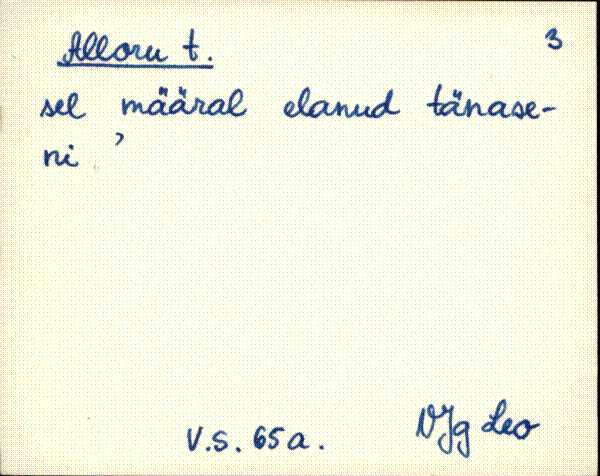 Alloru t. 3
sel määral elanud tänase-
ni ’
V.S. 65a. VJg Leo